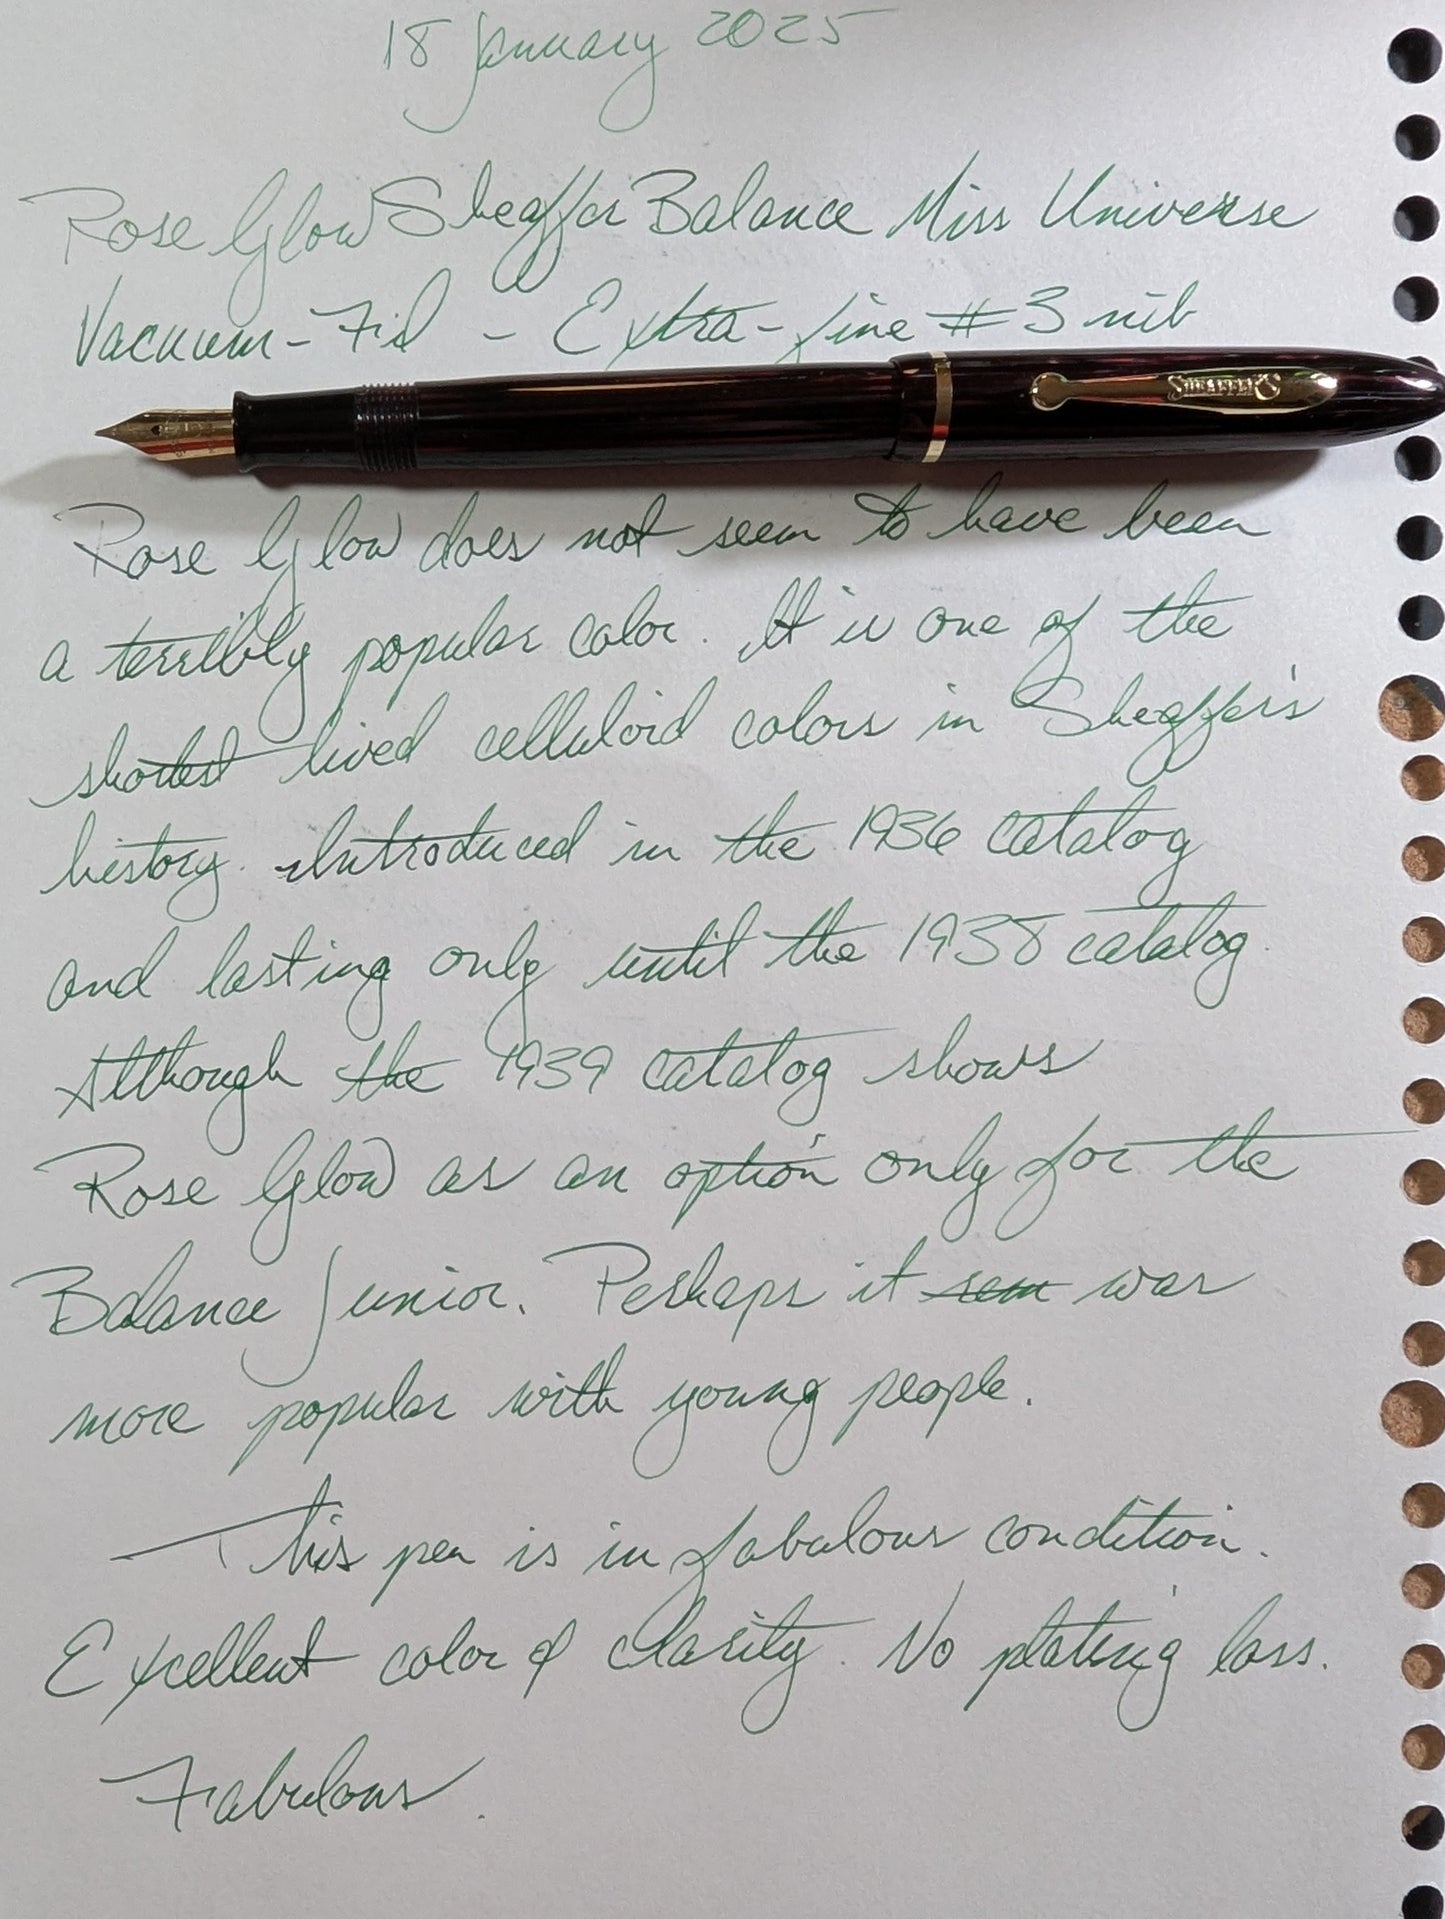 18 January 2025
Rose Glow Sheaffer Balance Miss Universe
Vacuum-Fil - Extra-fine #3 nib
SHEAFFER'S
Rose Glow does not seem to have been
a terribly popular color. It is one of the
shortest lived celluloid colors in Sheaffer's
history. Introduced in the 1936 catalog
and lasting only until the 1938 catalog.
Although the 1939 catalog shows
Rose Glow as an option only for the
Balance Junior. Perhaps it was
more popular with young people.
This pen is in fabulous condition.
Excellent color & clarity. No plating loss.
Fabulous.